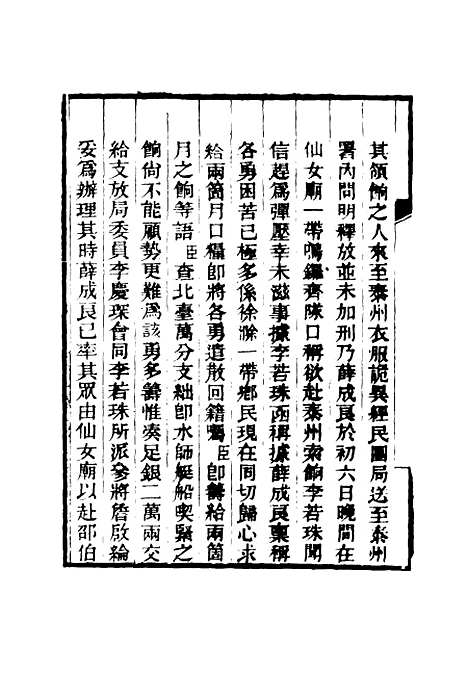 其領餉之人來至泰州衣服詭異經民團局送至泰州
署內問明釋放並未加刑乃薛成良於初六日晚間在
仙女廟一帶鳴鑼齊隊口稱欲赴泰州索餉李若珠聞
信趕爲彈壓幸未滋事據李若珠函稱據薛成良稟稱
各勇困苦已極多係徐滁一帶鄉民現在同切歸心求
給兩箇月口糧卽將各勇遣散回籍囑臣卽籌給兩箇
月之餉等語臣查北臺萬分支絀卽水師艇船喫緊之
餉尙不能顧勢更難爲該勇多籌惟湊足銀二萬兩交
給支放局委員李慶琛會同李若珠所派參將詹啟綸
妥爲辦理其時薛成良已率其眾由仙女廟以赴邵伯